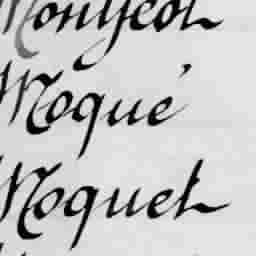 Montjeot
Moqué
Moquet